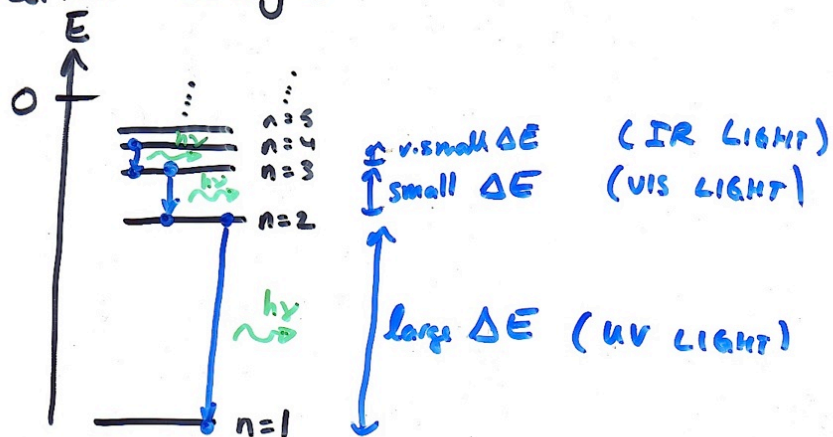 E
0
n=5
n=4
n=3
n=2
n=1
hν
hν
hν
v.small ΔE (IR LIGHT)
small ΔE (VIS LIGHT)
large ΔE (UV LIGHT)